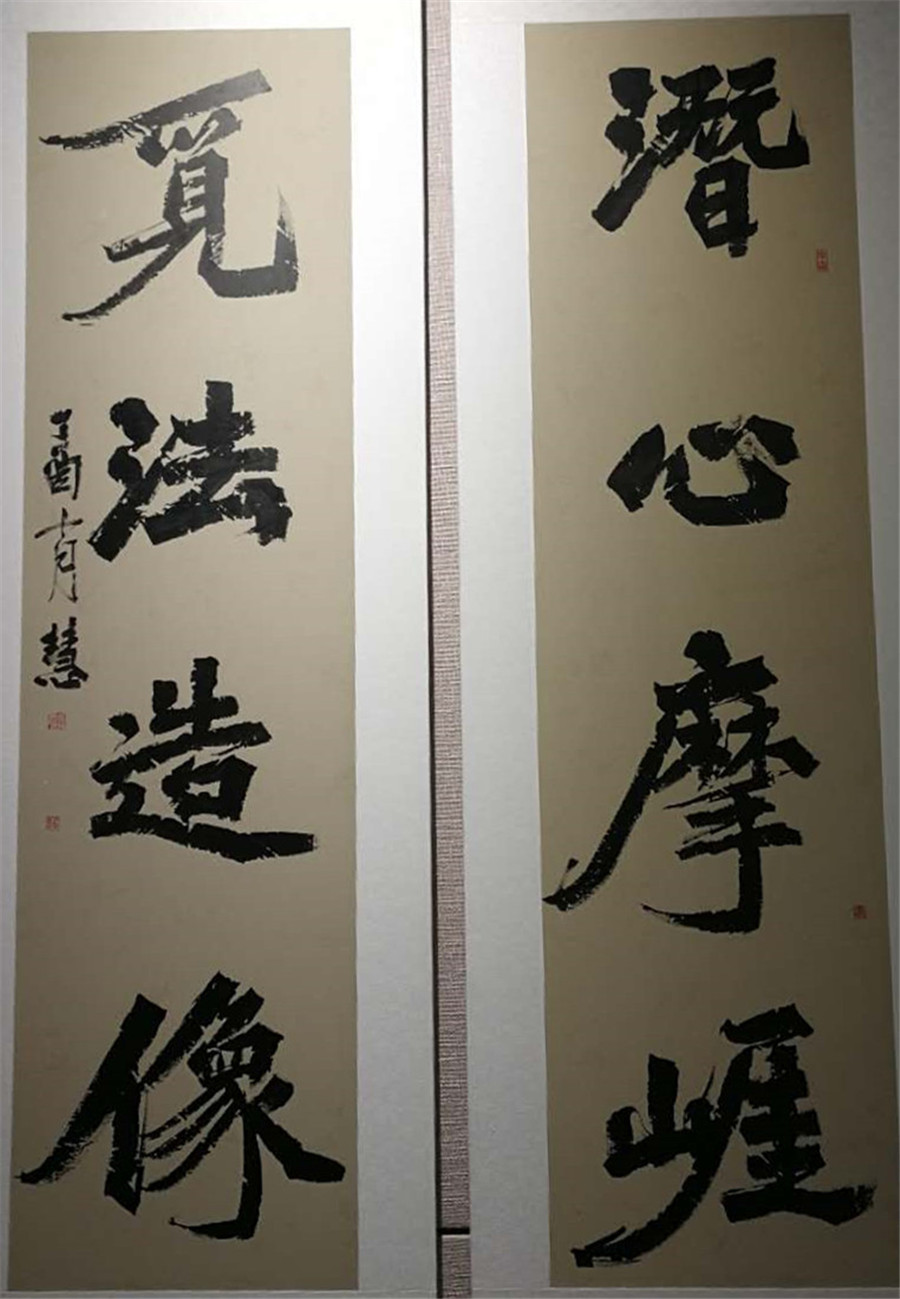 潛心摩崖
覓法造像
丁酉十月慧